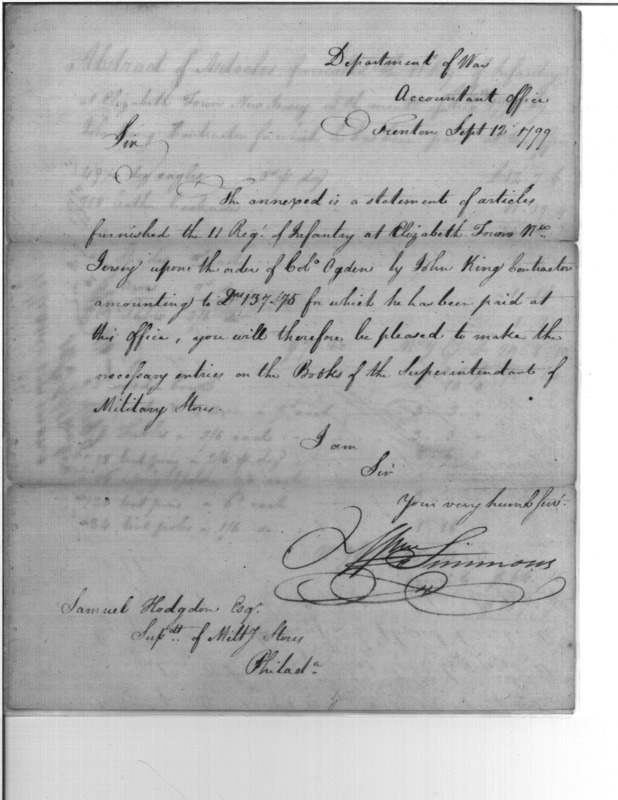 Department of War
Accountant Office
Trenton Sept 12 1799
Sir
The annexed is a statement of articles
furnished the 11 Regt. of Infantry at Elizabeth Town New
Jersey upon the order of Colo Ogden by John King Contractor
amounting to Drs 137.75 for which he has been paid at
this Office, you will therefore be pleased to make the
necessary entries on the Books of the Superintendant of
Military Stores.
I am
Sir
Your very humb Servt.
Wm Simmons
Samuel Hodgdon Esqr.
Supdtt of Milty Stores
Philada.